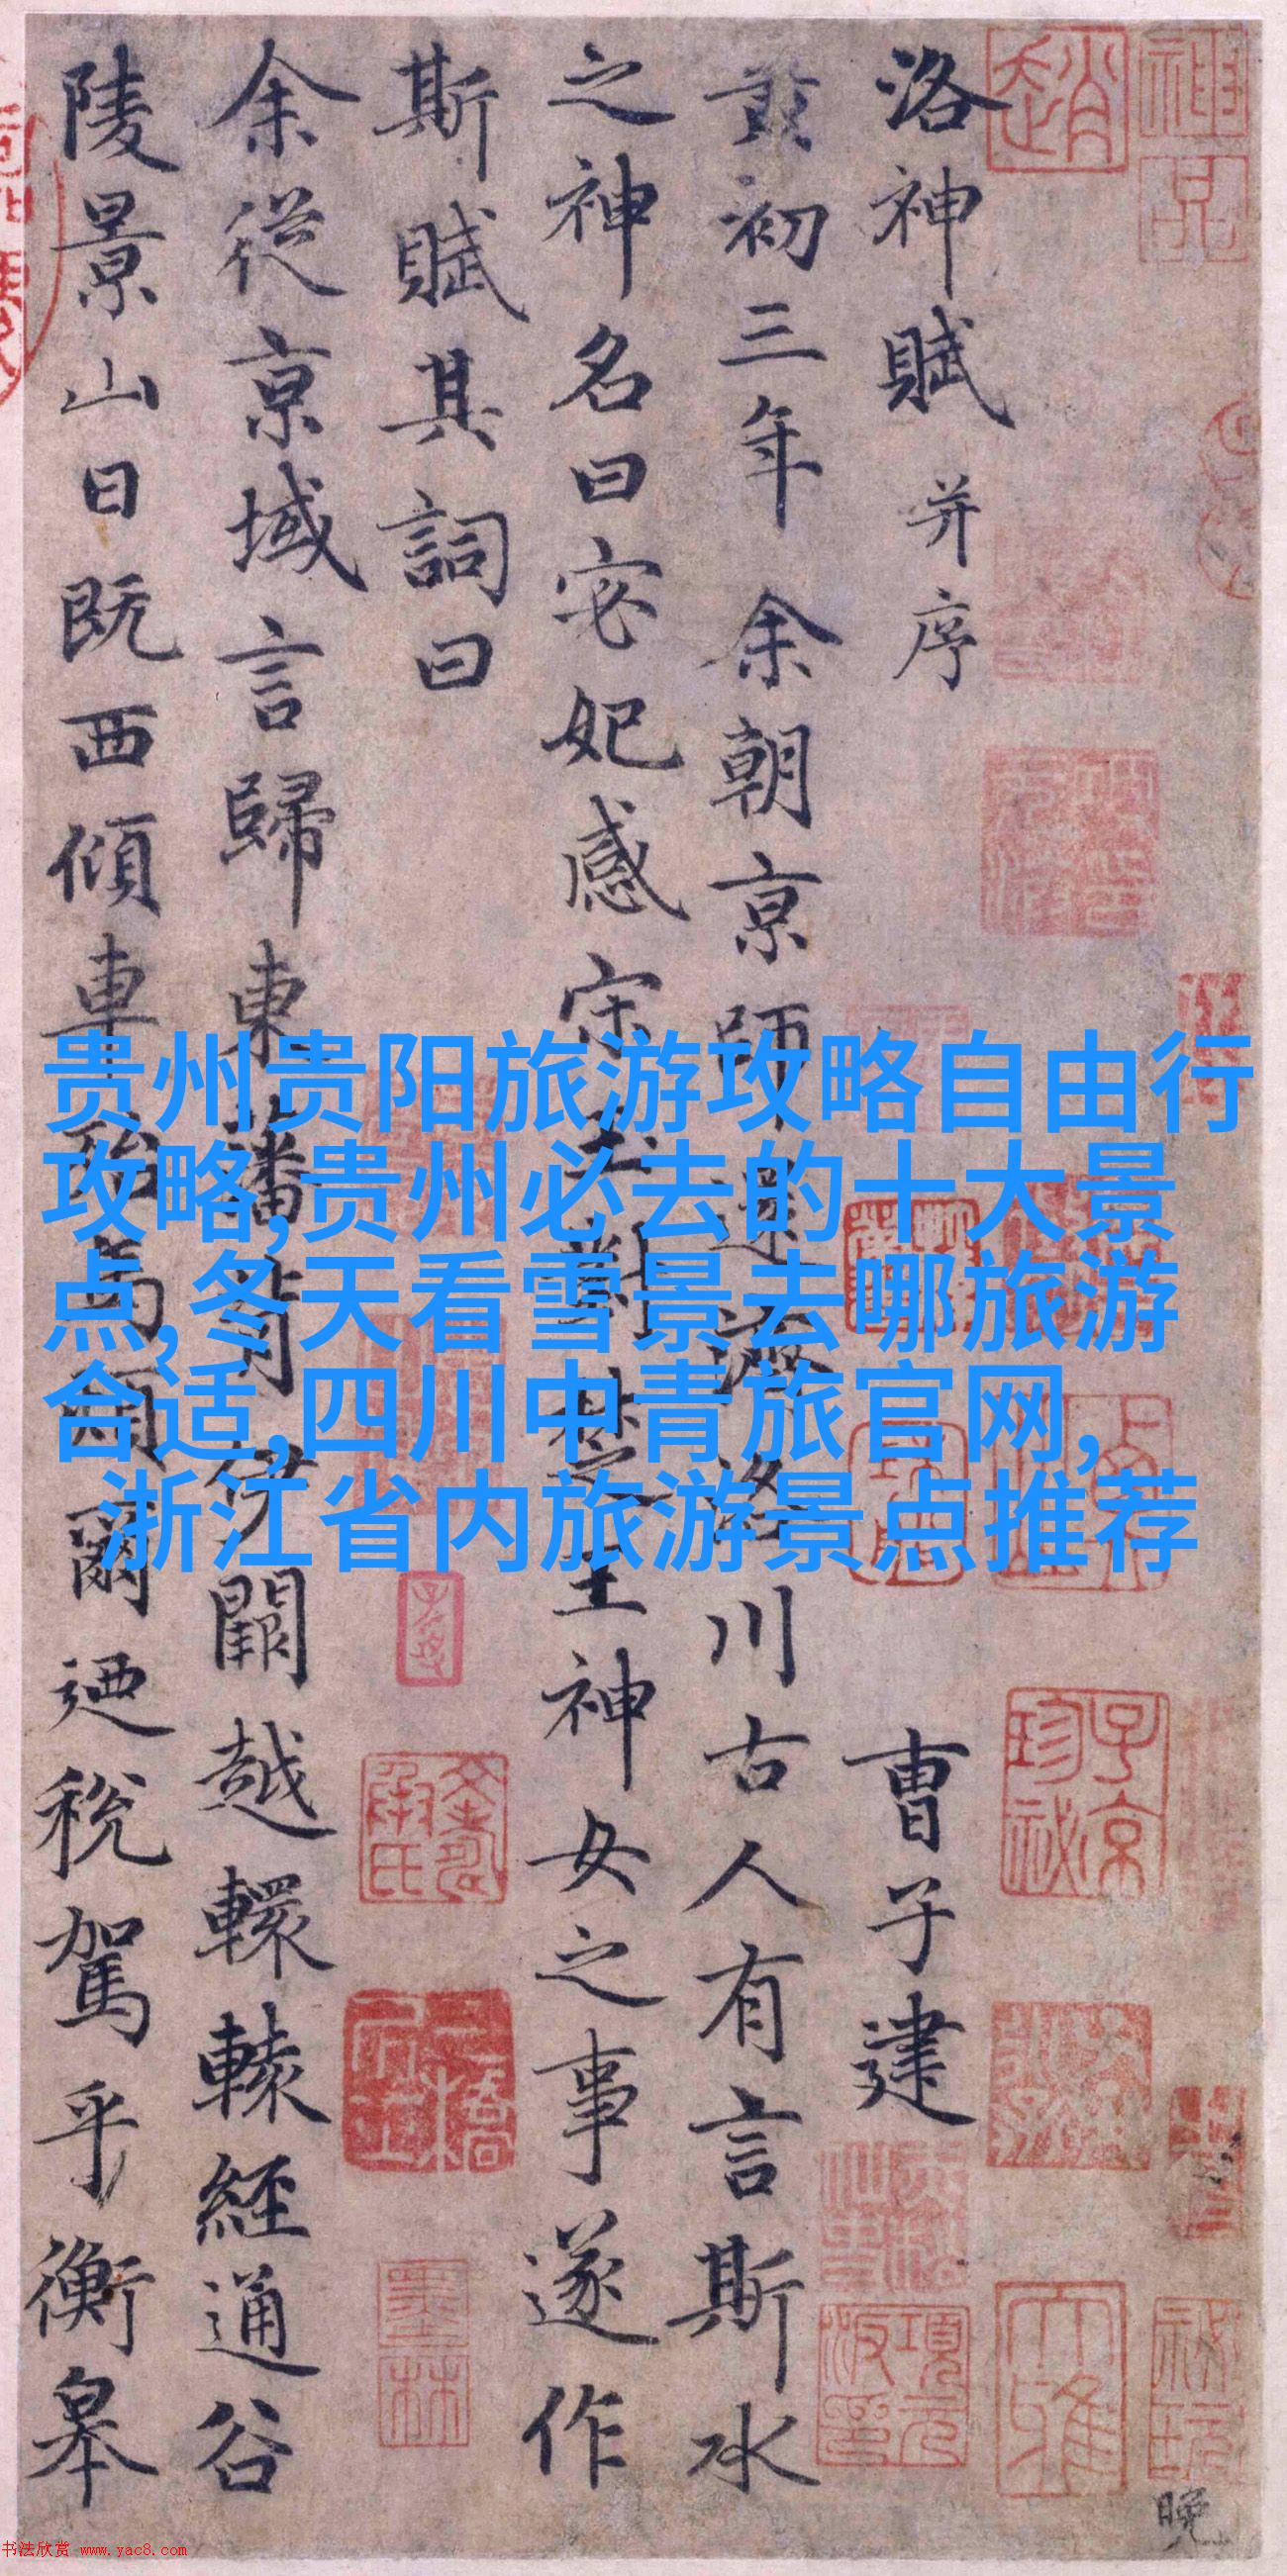 洛神賦 并序 曹子建
黄初三年余朝京師還濟洛川古人有言斯水
之神名曰宓妃感宋玉對楚王神女之事遂作
斯賦其詞曰
余從京域言歸東藩背伊闕越轘轅經通谷
陵景山日既西傾車殆馬煩爾迺税駕乎衡皋
贵州贵阳旅游攻略自由行
攻略,贵州必去的十大景
点,冬天看雪景去哪旅游
合适,四川中青旅官网,
浙江省内旅游景点推荐
趙
神品
子京珍祕
墨林
項元汴印
晚
书法欣赏 www.yac8.com